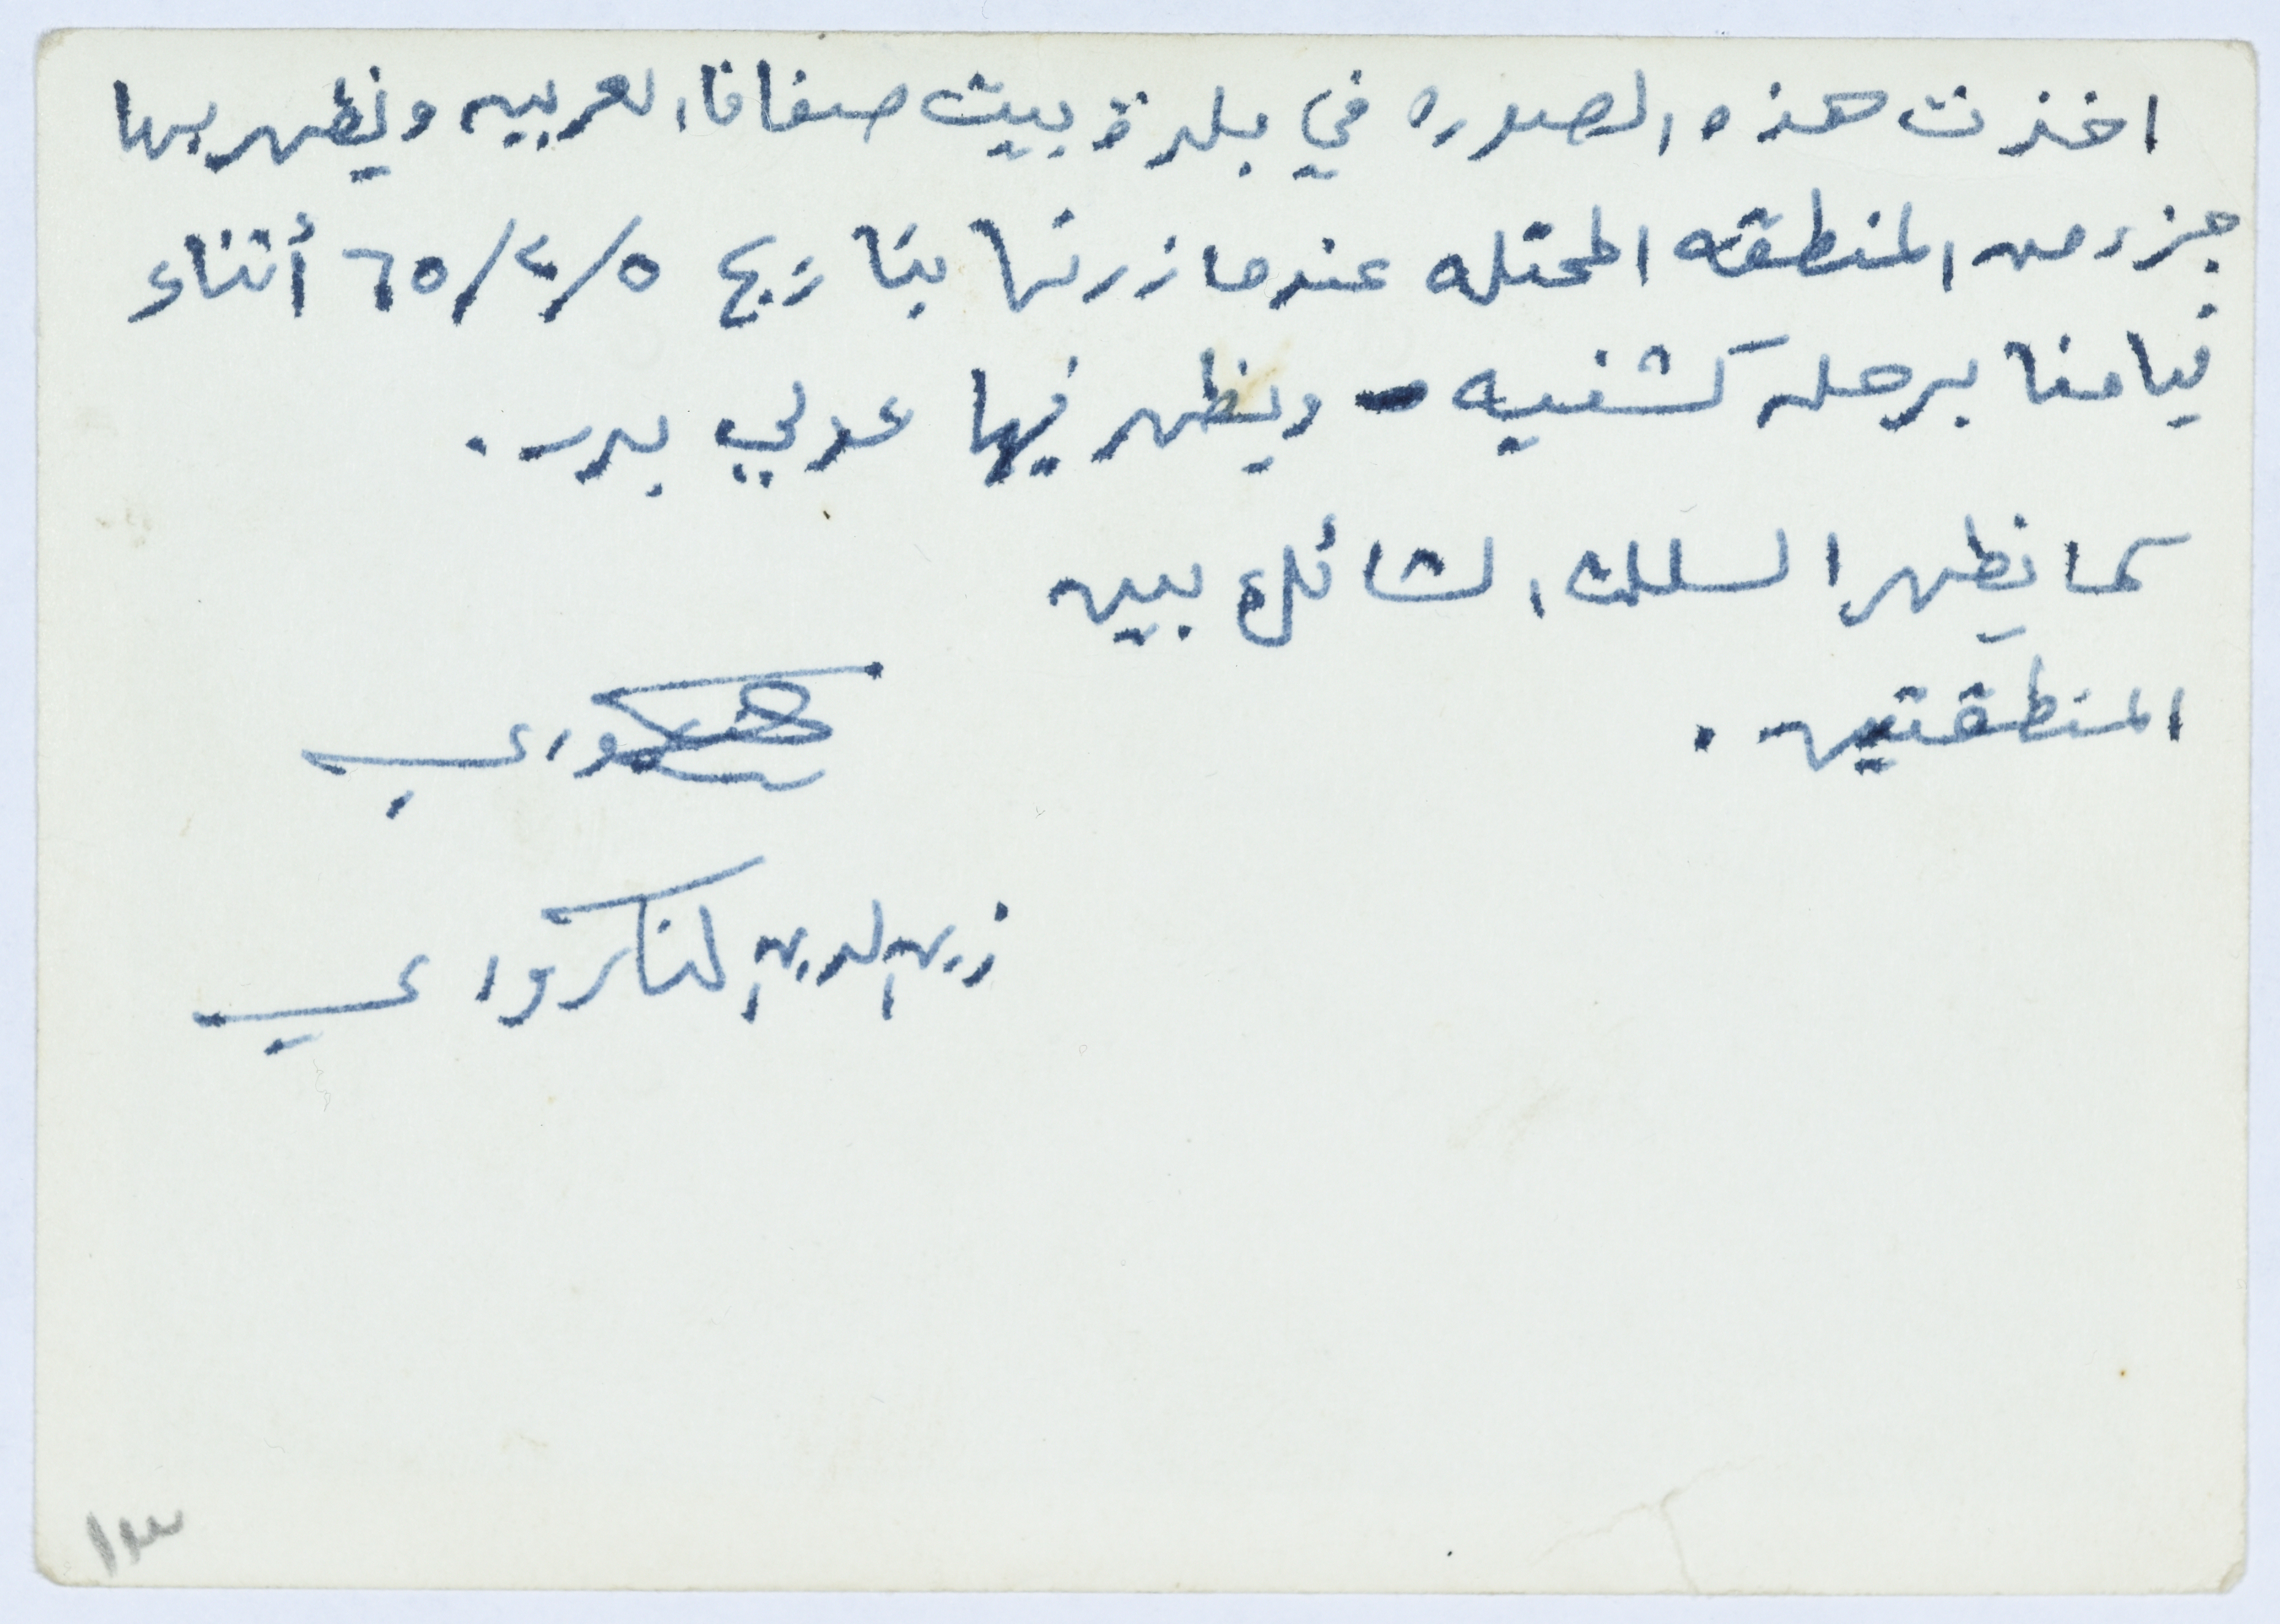 اخذت هذه الصوره في بلدة بيت صفافا العربيه ويظهر بها
جزء من المنطقه المحتله عندما زرتها بتاريخ ٦٥/٤/٥ أثناء
قيامنا برحله كشفيه - ويظهر فيها عدلي بدر .
كما يظهر السلك الشائك بين
المنطقتين .
زين الدين